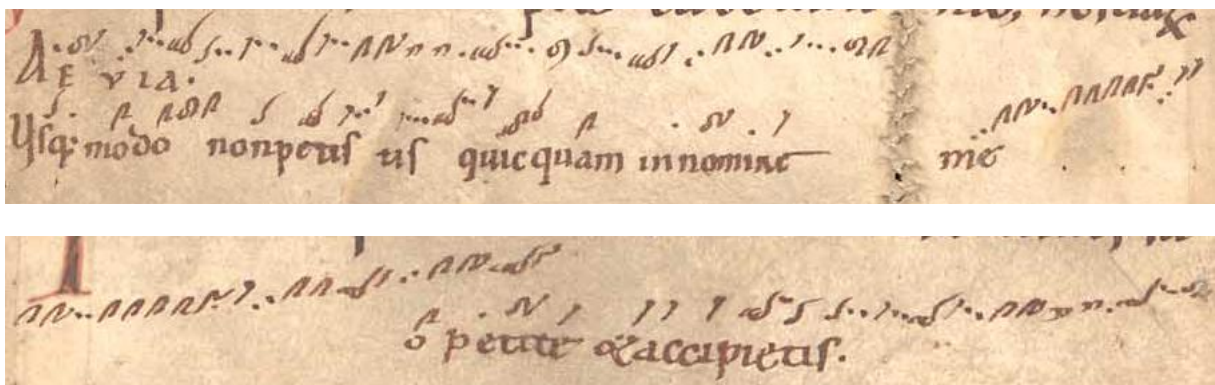 AE VIA.
Vsq; modo nonpetiſ tiſ quicquam innomine me
o petite &accipietiſ.